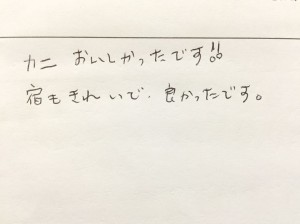 カニ おいしかったです!!
宿もきれいで、良かったです。